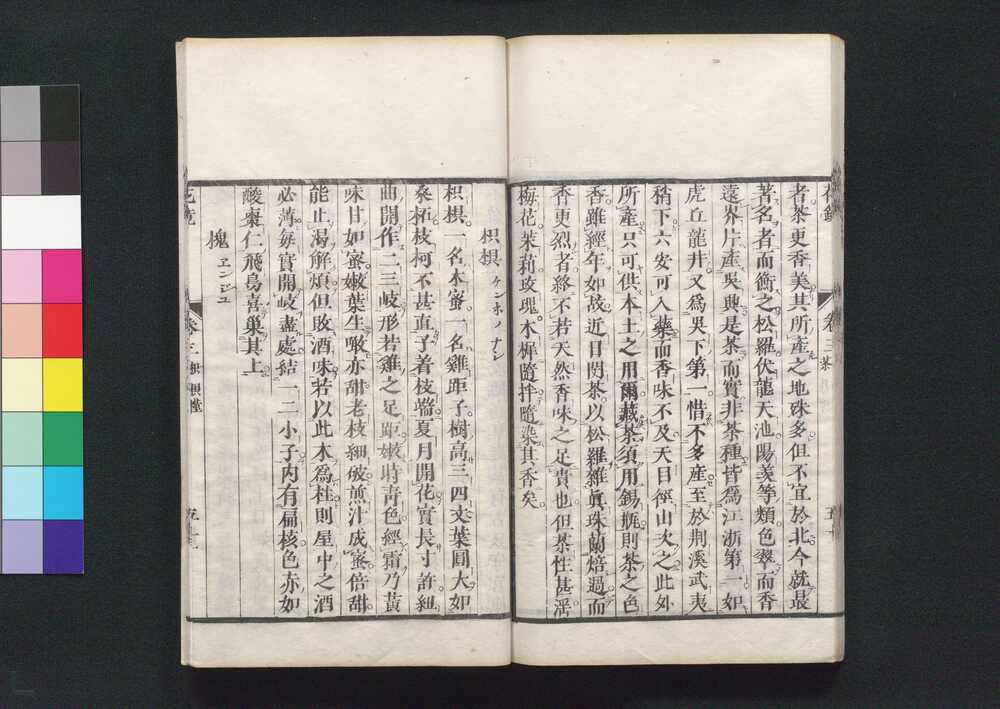 者茶更香美其所產之地殊多但不宜於北今就最
著名者而衡之松羅伏龍天池陽羨等類色翠而香
遠岕片產吳興是茶而實非茶種皆爲江浙第一如
虎丘龍井又爲吳下第一惜不多產至於荆溪武夷
稍下六安可入藥而香味不及天目徑山次之此外
所產只可供本土之用爾藏茶須用錫瓶則茶之色
香雖經年如故近日閩茶以松羅雜眞珠蘭焙過而
香更烈者終不若天然香味之足貴也但茶性甚淫
梅花茉莉玫瑰木樨隨拌隨染其香矣
枳椇 ケンホノナシ
枳椇一名木蜜一名雞距子樹高三四丈葉圓大如
桑柘枝柯不甚直子着枝端夏月開花實長寸許紐
曲開作二三岐形若雞之足距嫩時靑色經霜乃黃
味甘如蜜嫩葉生噉亦甜老枝細破煎汁成蜜倍甜
能止渴解煩但敗酒味若以此木爲柱則屋中之酒
必薄每實開岐盡處結一二小子內有扁核色赤如
酸棗仁飛鳥喜巢其上
槐 エンジユ
花鏡 卷三